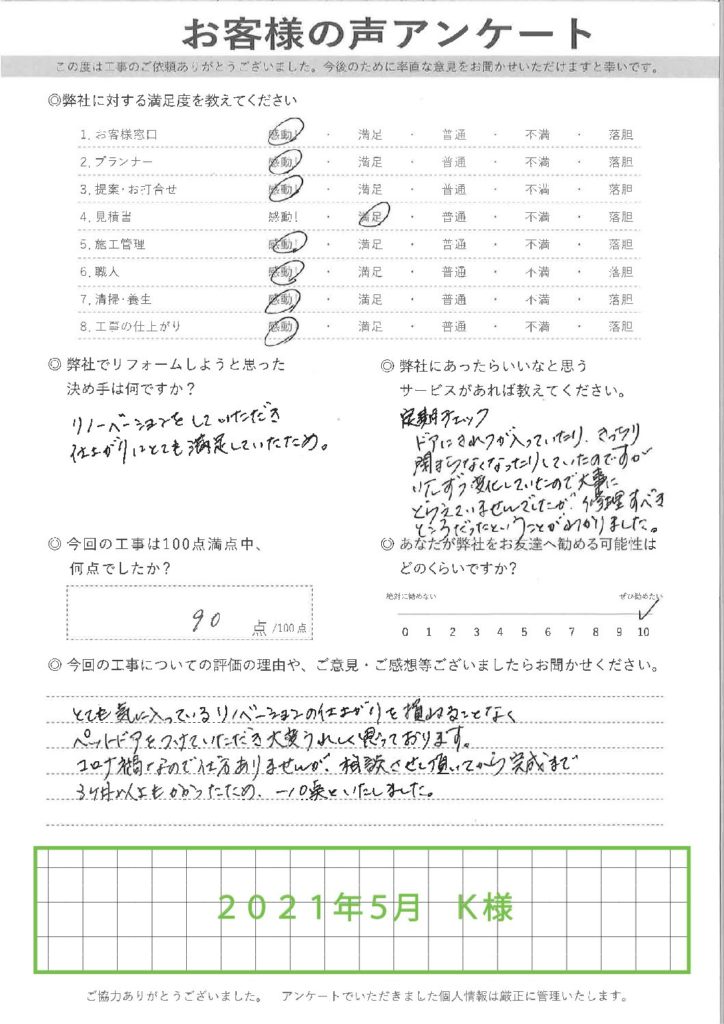 お客様の声アンケート
この度は工事のご依頼ありがとうございました。今後のために率直な意見をお聞かせいただけますと幸いです。
◎弊社に対する満足度を教えてください
1. お客様窓口 感動! ・ 満足 ・ 普通 ・ 不満 ・ 落胆
2. プランナー 感動! ・ 満足 ・ 普通 ・ 不満 ・ 落胆
3. 提案・お打合せ 感動! ・ 満足 ・ 普通 ・ 不満 ・ 落胆
4. 見積書 感動! ・ 満足 ・ 普通 ・ 不満 ・ 落胆
5. 施工管理 感動! ・ 満足 ・ 普通 ・ 不満 ・ 落胆
6. 職人 感動! ・ 満足 ・ 普通 ・ 不満 ・ 落胆
7. 清掃・養生 感動! ・ 満足 ・ 普通 ・ 不満 ・ 落胆
8. 工事の仕上がり 感動! ・ 満足 ・ 普通 ・ 不満 ・ 落胆
◎ 弊社でリフォームしようと思った
決め手は何ですか？
リノーベーションをしていただき
仕上がりにとても満足していたため。
◎ 弊社にあったらいいなと思う
サービスがあれば教えてください。
定期チェック
ドアにきれつが入っていたり、きっちり
閉まらなくなったりしていたのですが
いたずつ変化していたので大事に
とらえていませんでしたが、修理すべき
ところだったということがわかりました。
◎ 今回の工事は100点満点中、
何点でしたか？
90 点 /100点
◎ あなたが弊社をお友達へ勧める可能性は
どのくらいですか？
絶対に勧めない ぜひ勧めたい
0 1 2 3 4 5 6 7 8 9 10
◎ 今回の工事についての評価の理由や、ご意見・ご感想等ございましたらお聞かせください。
とても気に入っているリノベーションの仕上がりを損ねることなく
ペットドアをつけていただき大変うれしく思っております。
コロナ禍なので仕方ありませんが、相談させて頂いてから完成まで
3ヶ月以上もかかったため、-10点といたしました。
２０２１年５月　K様
ご協力ありがとうございました。　アンケートでいただきました個人情報は厳正に管理いたします。